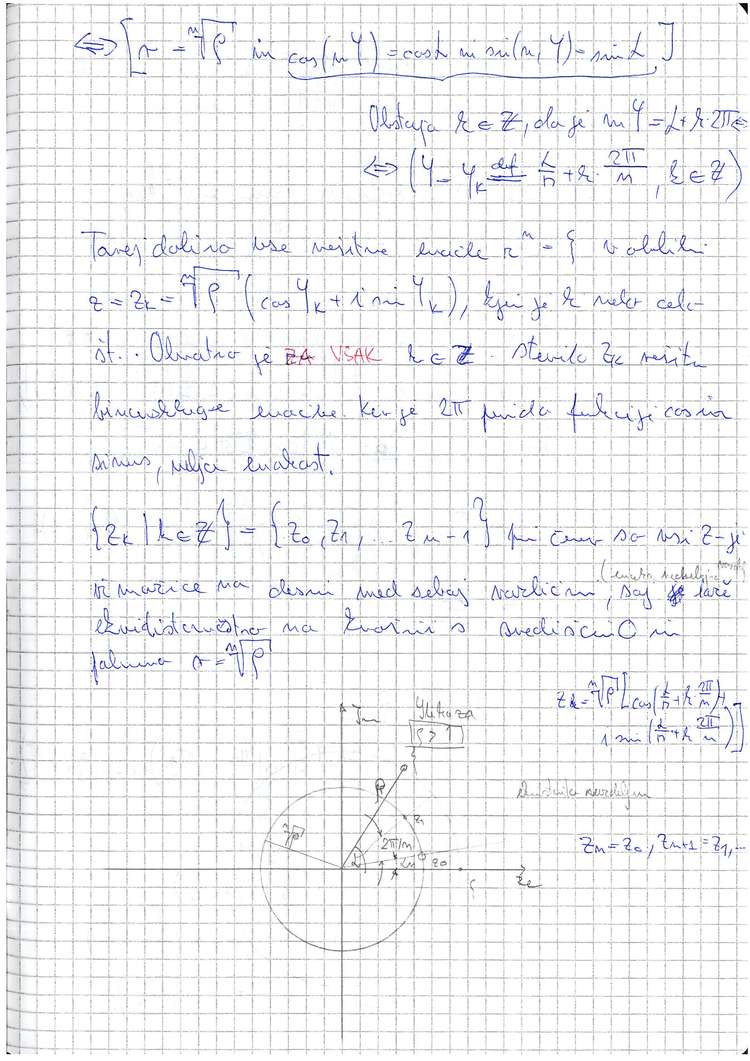 ⇔ [r = ⁿ√ρ in cos(nφ) = cos α in sin(n, φ) = sin α.]
Obstaja k ∈ ℤ, da je nφ = α + k·2π ⇔
⇔ (φ = φ_k def= α/n + k·2π/n, k ∈ ℤ)
Torej dobimo vse rešitve enačbe zⁿ = ξ v obliki
z = z_k = ⁿ√ρ (cos φ_k + i sin φ_k), kjer je k neko celo
št.. Obratno je ZA VSAK k ∈ ℤ. število z_k rešitev
enačbe. Ker je 2π perioda funkcije cos in
sinus, velja enakost.
{z_k | k ∈ ℤ} = {z₀, z₁, ... z_{n-1}} pri čemer so vsi z-ji
iz množice na desni med seboj različni, saj leže
ekvidistančno na krožnici s središčem 0 in
polmerom r = ⁿ√ρ
z_k = ⁿ√ρ [cos(α/n + k·2π/n) +
i sin(α/n + k·2π/n)]
Im
ρ > 1
ξ
ρ
z₁
ⁿ√ρ
2π/n
α
z₀
z_n = z₀, z_{n+1} = z₁, ...
1
Re